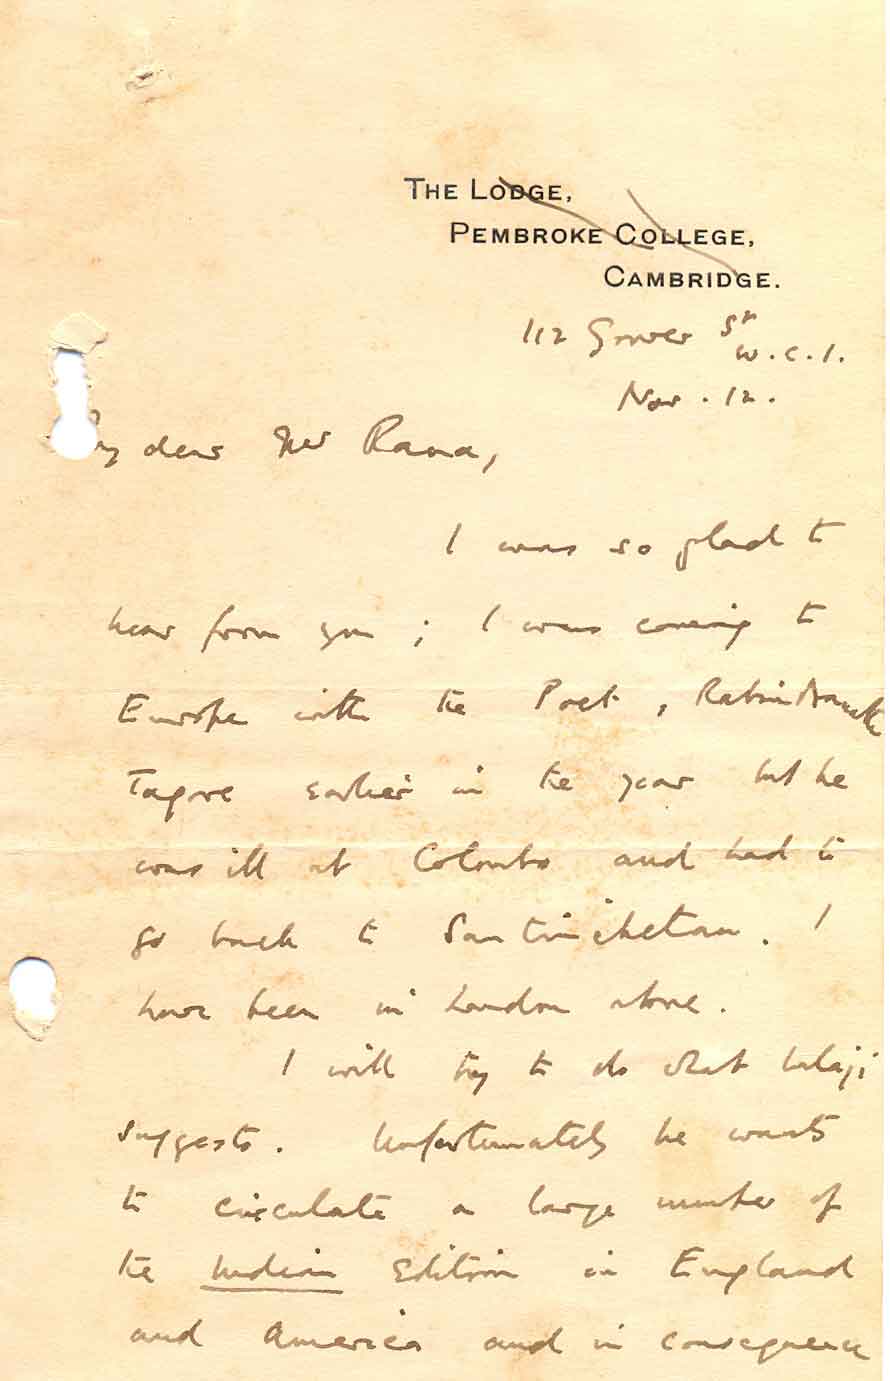 THE LODGE,
PEMBROKE COLLEGE,
CAMBRIDGE.
112 Gower St
W.C.1.
Nov. 12.
My dear Mr Rana,
I was so glad to
hear from you; I was coming to
Europe with the Poet, Rabindranath
Tagore earlier in the year but he
was ill at Colombo and had to
go back to Santiniketan. I
have been in London alone.
I will try to do what Lalaji
suggests. Unfortunately he wants
to circulate a large number of
the Indian Edition in England
and America and in consequence